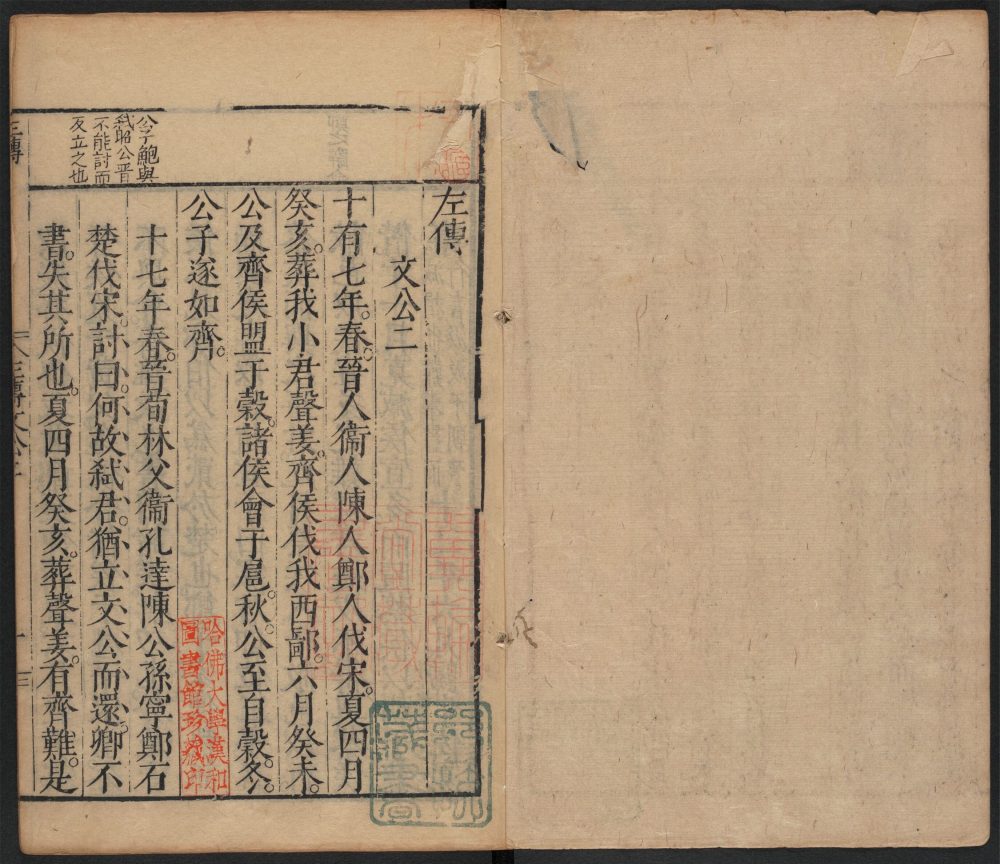 左傳
文公二
十有七年。春。晉人衞人陳人鄭人伐宋。夏四月
癸亥。葬我小君聲姜。齊侯伐我西鄙。六月癸未。
公及齊侯盟于穀。諸侯會于扈。秋。公至自穀。冬。
公子遂如齊。
十七年春。晉荀林父衞孔達陳公孫寧鄭石
楚伐宋。討曰。何故弑君。猶立文公而還。卿不
書。失其所也。夏四月癸亥。葬聲姜。有齊難。是
公子鮑與
弑昭公晋
不能討而
反立之也
哈佛大學漢和
圖書館珍藏印